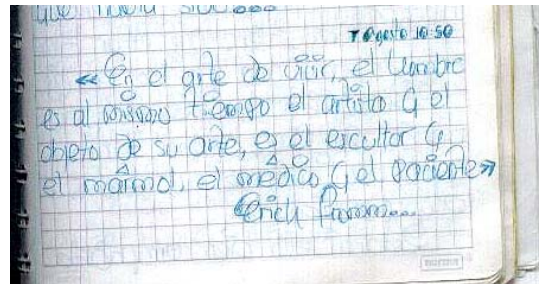 que
7 Agosto 10:50
«En el arte de vivir, el hombre
es al mismo tiempo el artista y el
objeto de su arte, es el escultor y
el mármol, el médico y el paciente»
Erich Fromm...